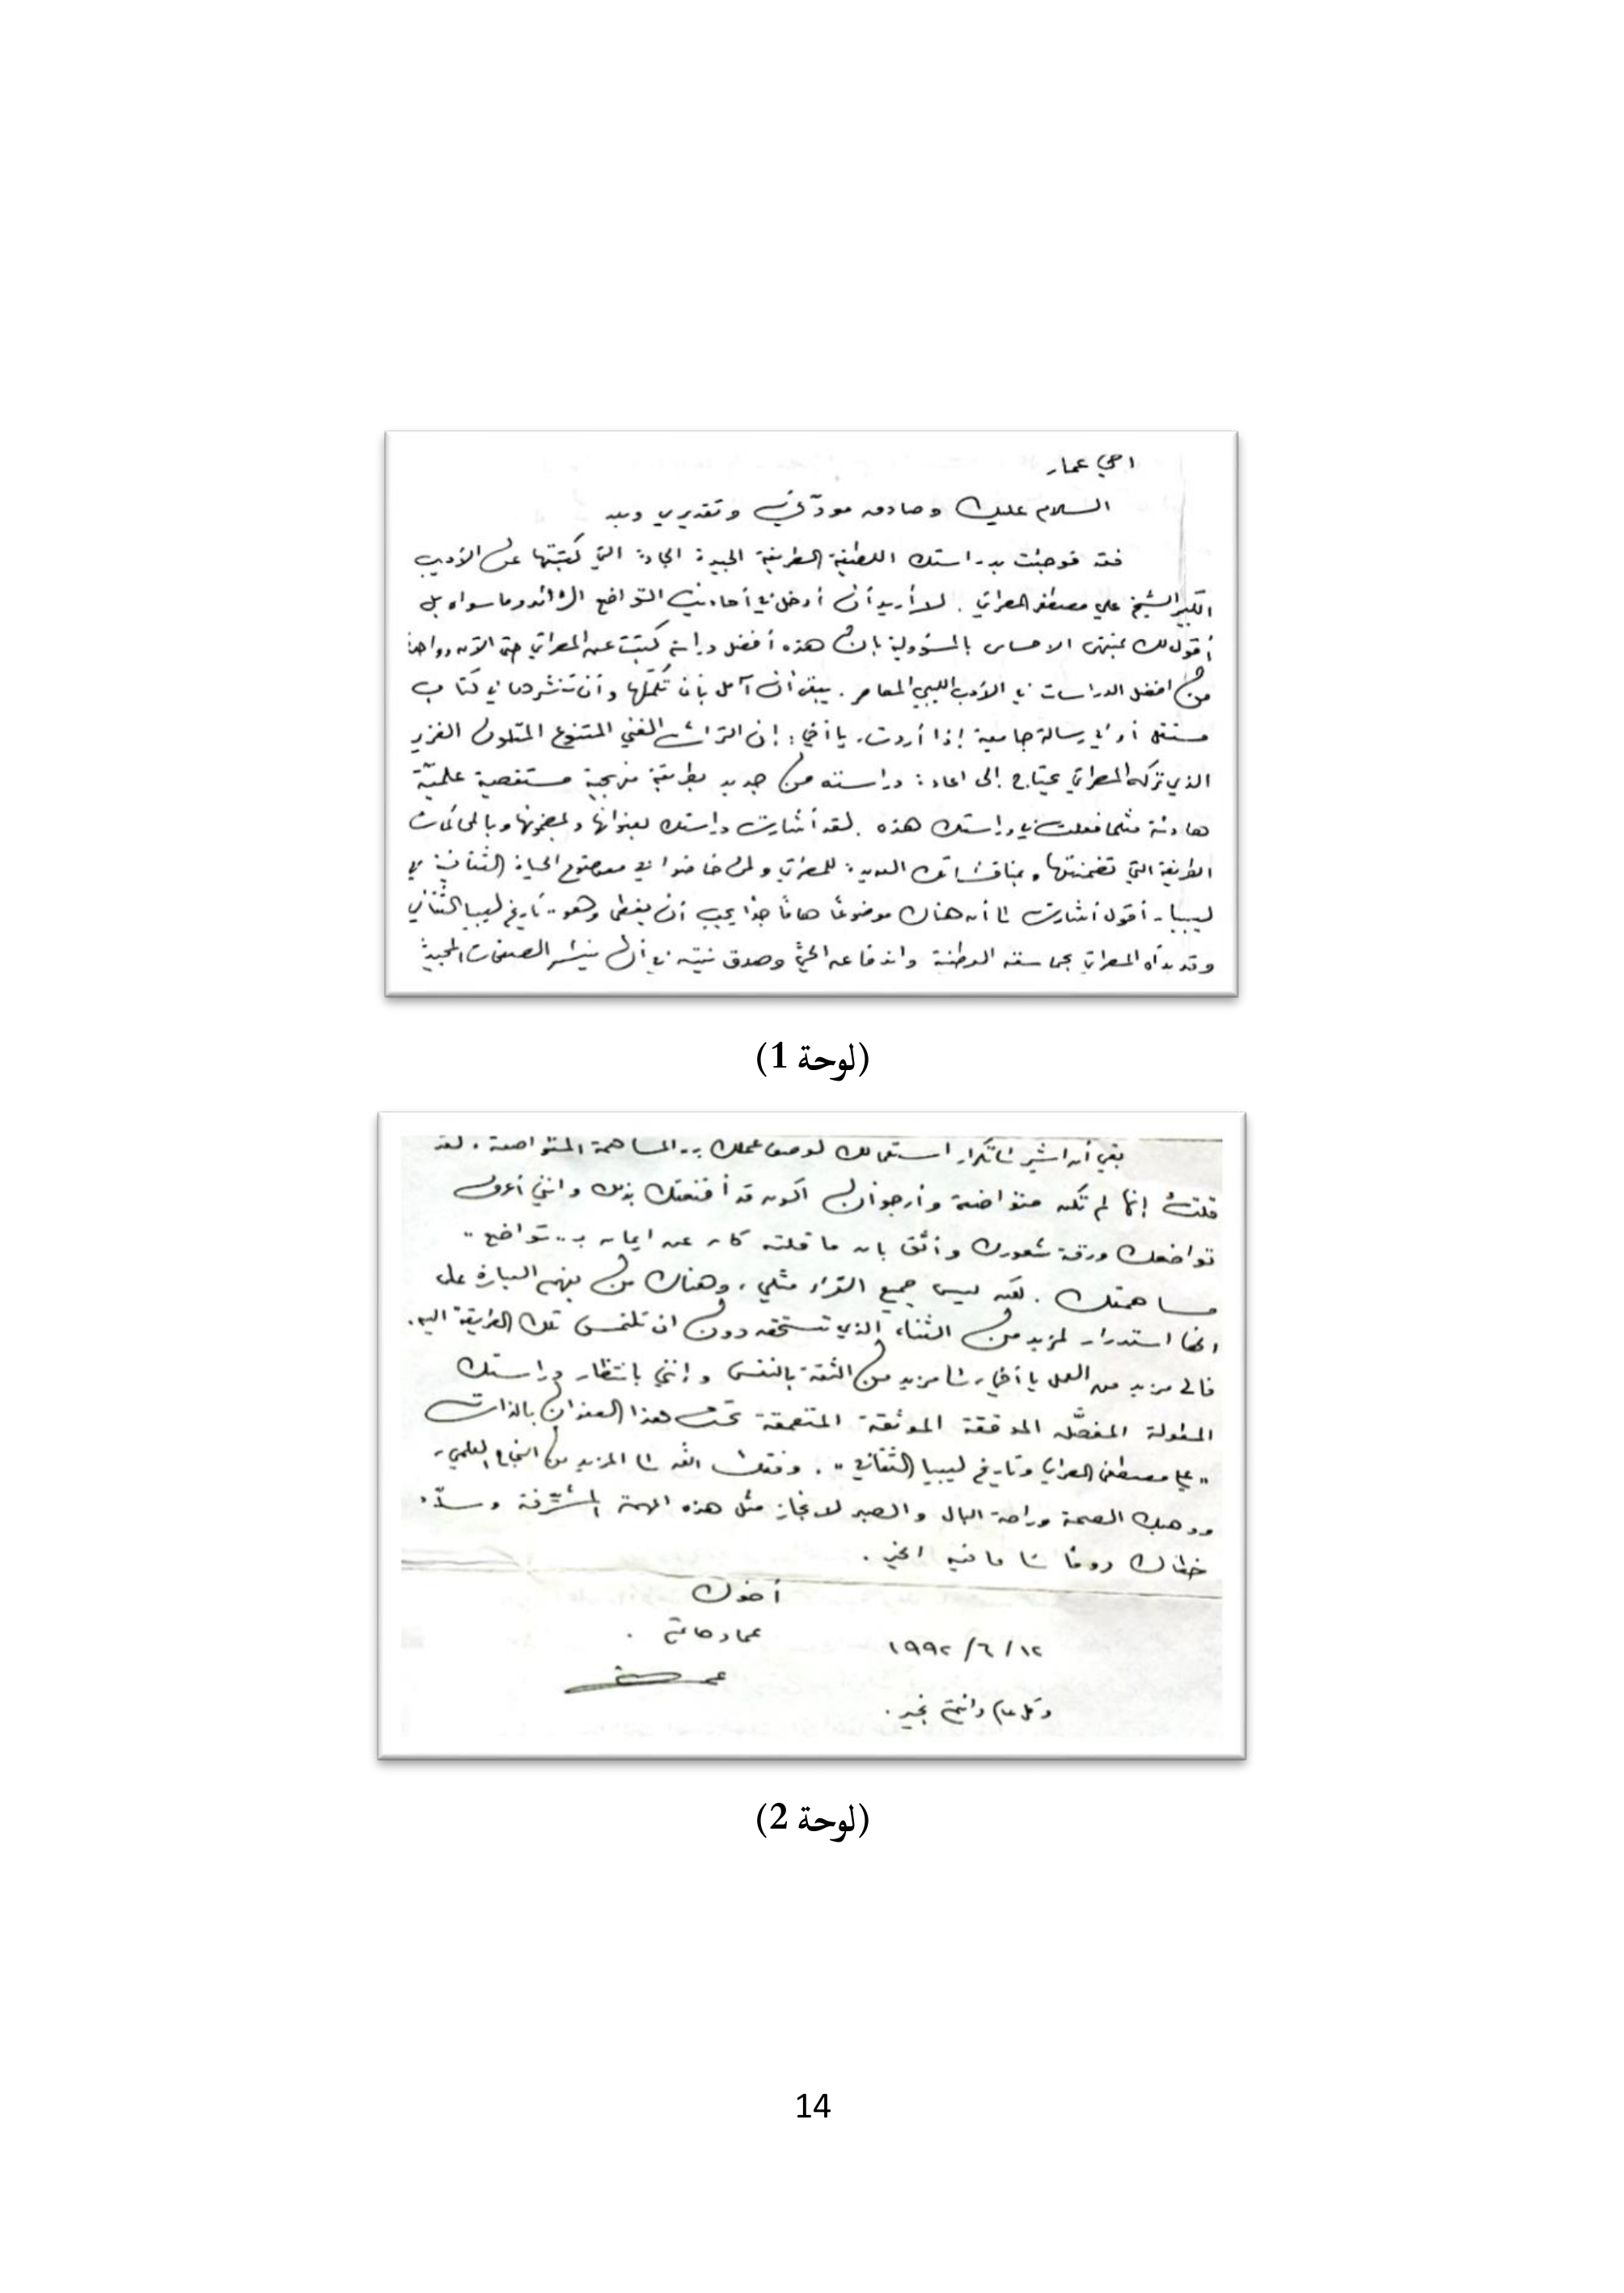 اخي عمار
السلام عليك وصادق مودّتي وتقديري وبعد
فقد فوجئت بدراستك اللطيفة الطريفة الجيدة الجادة التي كتبتها عن الأديب
الكبير الشيخ علي مصطفى المصراتي . لا أريد أن أدخل في أحاديث التواضع الزائد وما سواه بل
أقول لك بمنتهى الاحساس بالمسؤولية بان هذه أفضل دراسة كتبت عن المصراتي حتى الآن وواحدة
من افضل الدراسات في الأدب الليبي المعاصر . يبقى أن آمل بأن تكمّلها وأن تنشرها في كتاب
مستقل أو في رسالة جامعية إذا أردت . يا أخي : إن التراث الغني المتنوع المتلون الغزير
الذي تركه المصراتي يحتاج إلى اعادة دراسته من جديد بطريقة منهجية مستقصية علميّة
هادئة مثلما فعلت في دراستك هذه . لقد أشارت دراستك بعنوانها وبمضمونها وبالمحاكمات
الطريفة التي تضمنتها وبمناقشاتك العديدة للمصراتي ولمن خاضوا في موضوع الحياة الثقافية في
ليبيا - أقول أشارت الى أن هناك موضوعًا هامًا جدًا يجب أن يغطى وهو " تاريخ ليبيا الثقافي
وقد بدأه المصراتي بحماسته الوطنية واندفاعه الحيّ وصدق نيته في أن ينشر الصفحات المجيدة
(لوحة 1)
بقي أن اشير الى تكرار استعمالك لوصف عملك بـ " المساهمة المتواضعة . لقد
قلت إنها لم تكن متواضعة وأرجو أن اكون قد أقنعتك بذلك وانني أعرف
تواضعك ورقة شعورك وأثق بان ما قلته كان عن ايمان بـ " تواضع "
مساهمتك . لكن ليس جميع القراء مثلي ، وهناك من يفهم العبارة على
انها استدرار لمزيد من الثناء الذي تستحقه دون ان تلتمس تلك الطريقة اليه .
فالى مزيد من العمل يا أخي ، الى مزيد من الثقة بالنفس وإنني بانتظار دراستك
المطولة المفصّلة المدققة الموثقة المتعمقة تحت هذا العنوان بالذات
" علي مصطفى المصراتي وتاريخ ليبيا الثقافي " . وفقك الله الى المزيد من النجاح العلمي ،
ووهبك الصحة وراحة البال والصبر لانجاز مثل هذه المهمة المشرّفة وسدّد
خطاك دومًا الى ما فيه الخير .
أخوك
عماد حاتم .
١٩٩٢/٦/١٢
وكل عام وانتم بخير .
(لوحة 2)
14